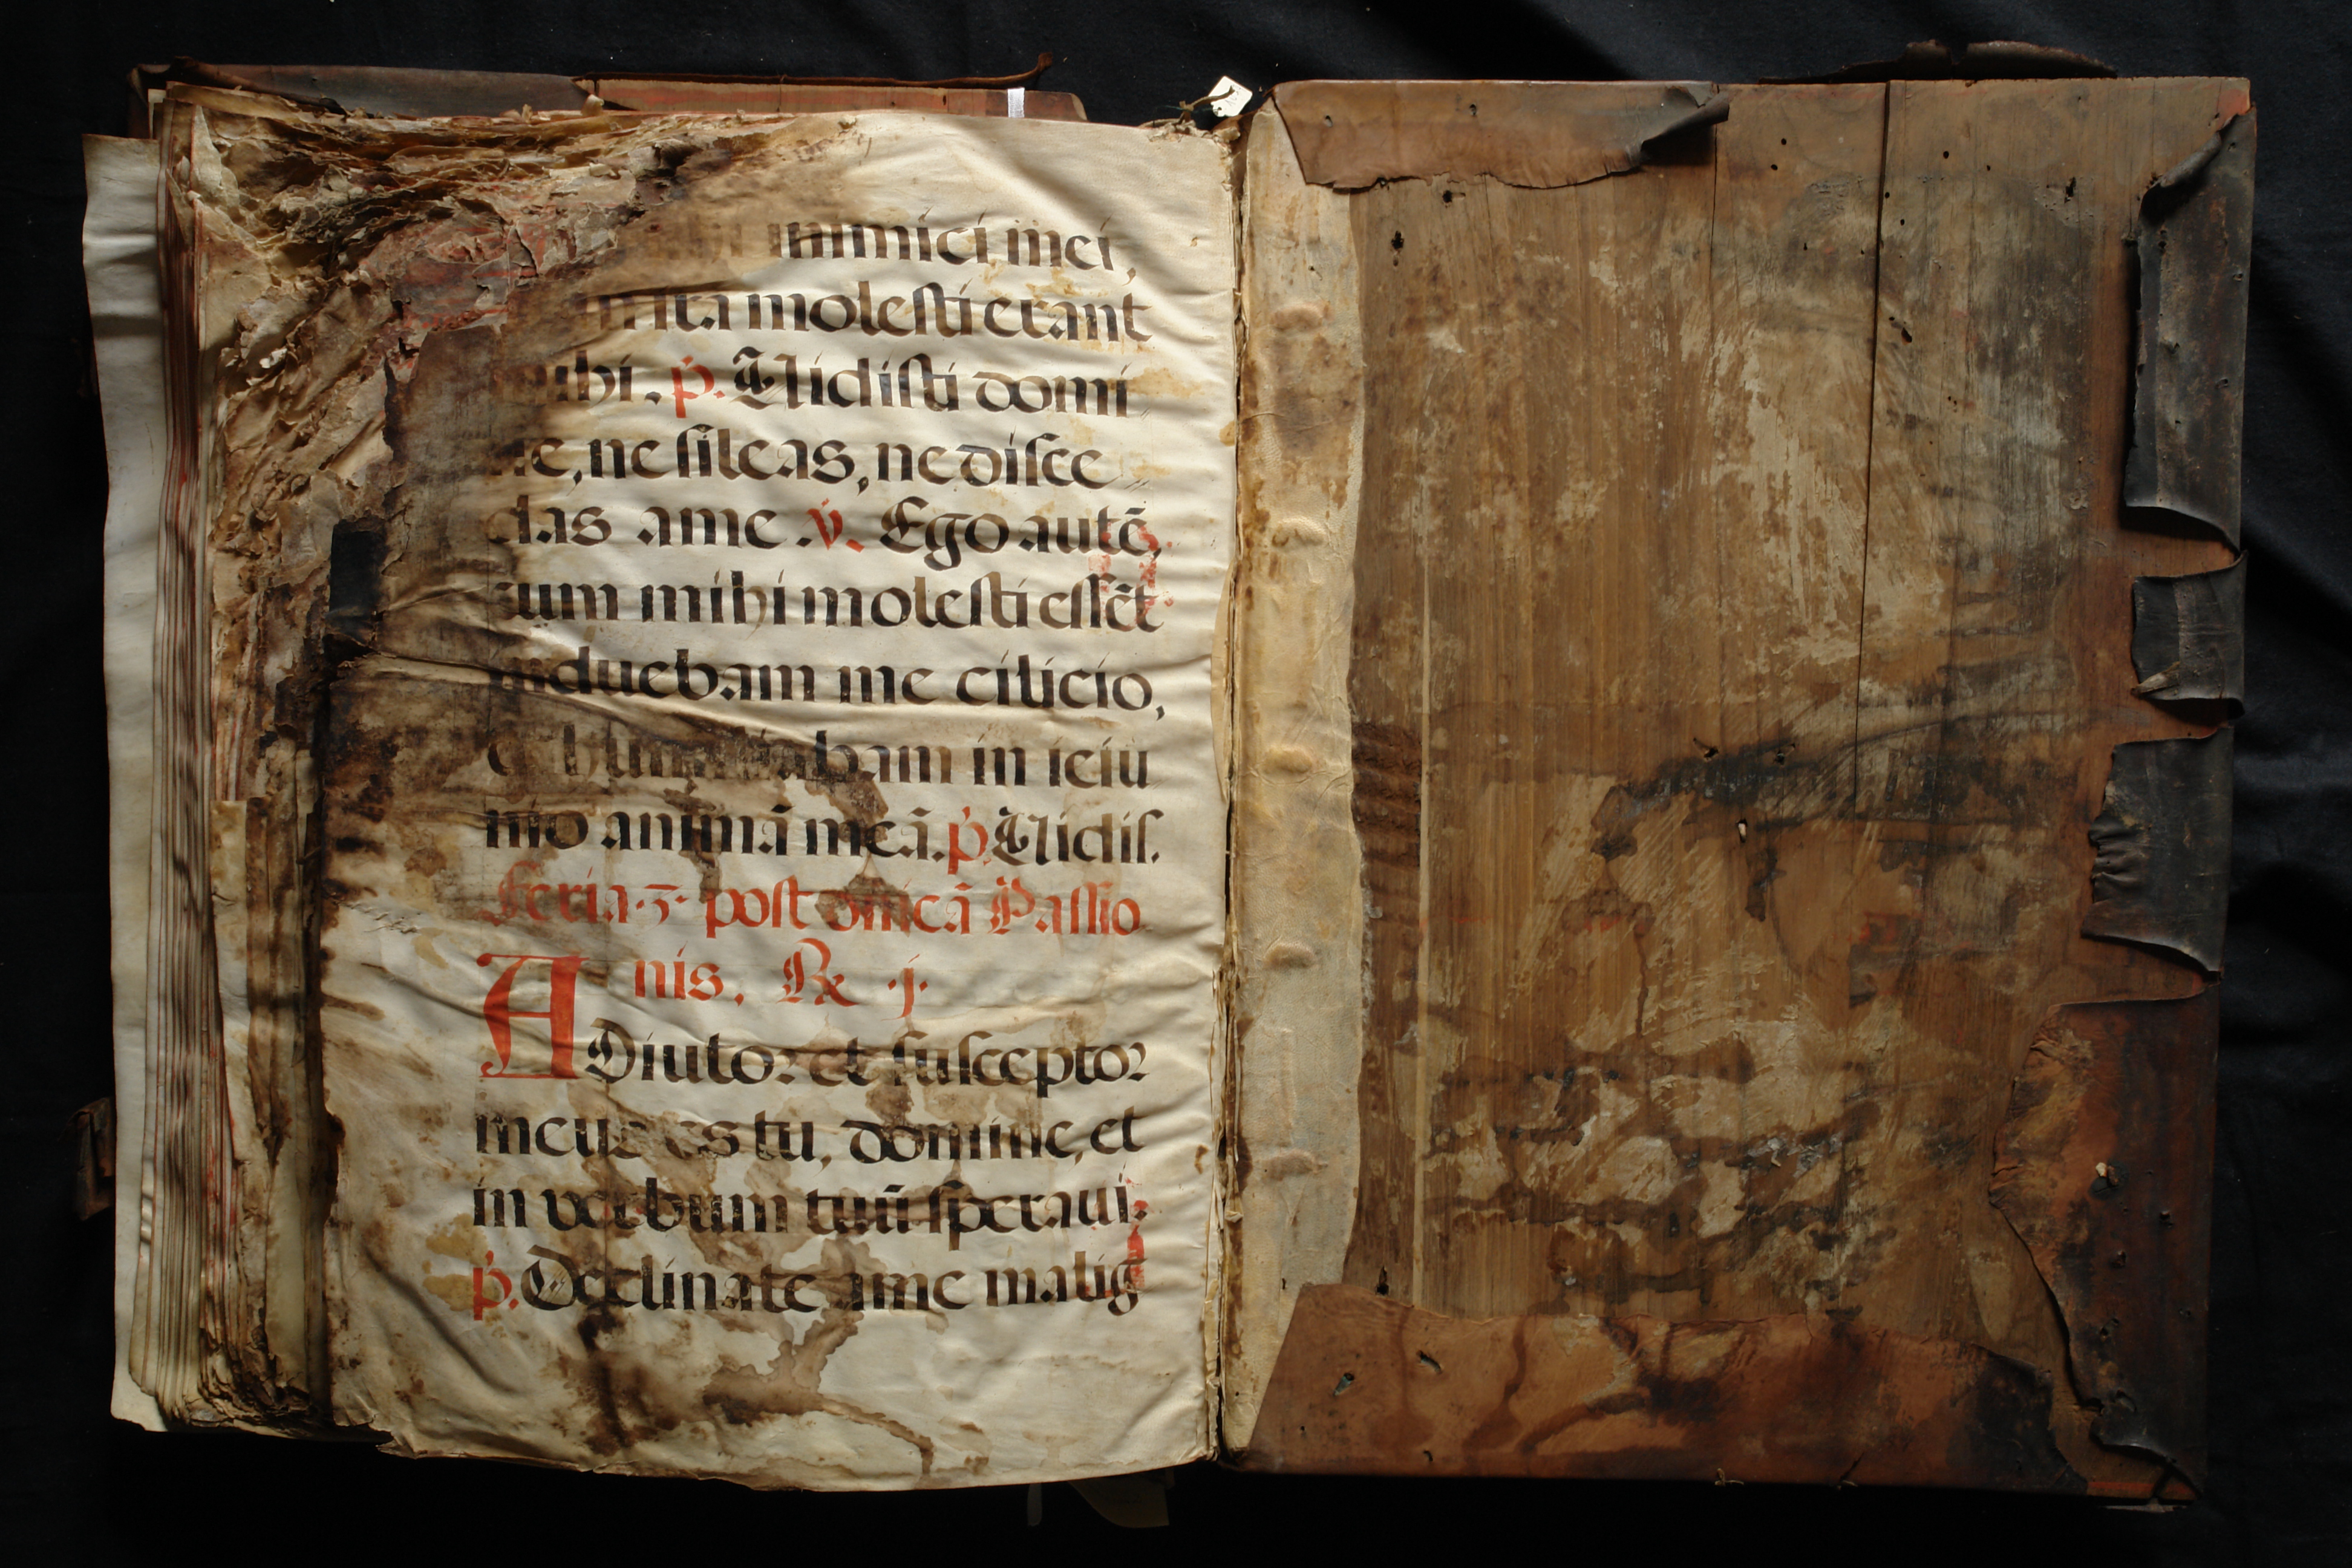 inimici mei,
molesti erant
mihi. p. Vidisti domi
ne, ne sileas, ne disce
das ame. v. Ego autē,
cum mihi molesti essēt
induebam me cilicio,
et humiliabam in ieiu
nio animā meā. p. Vidis.
Feria .3. post dn̄icā Passio
nis, R. j.
ADiutor et susceptor
meus es tu, domine, et
in verbum tuū speraui.
p. Declinate ame malig